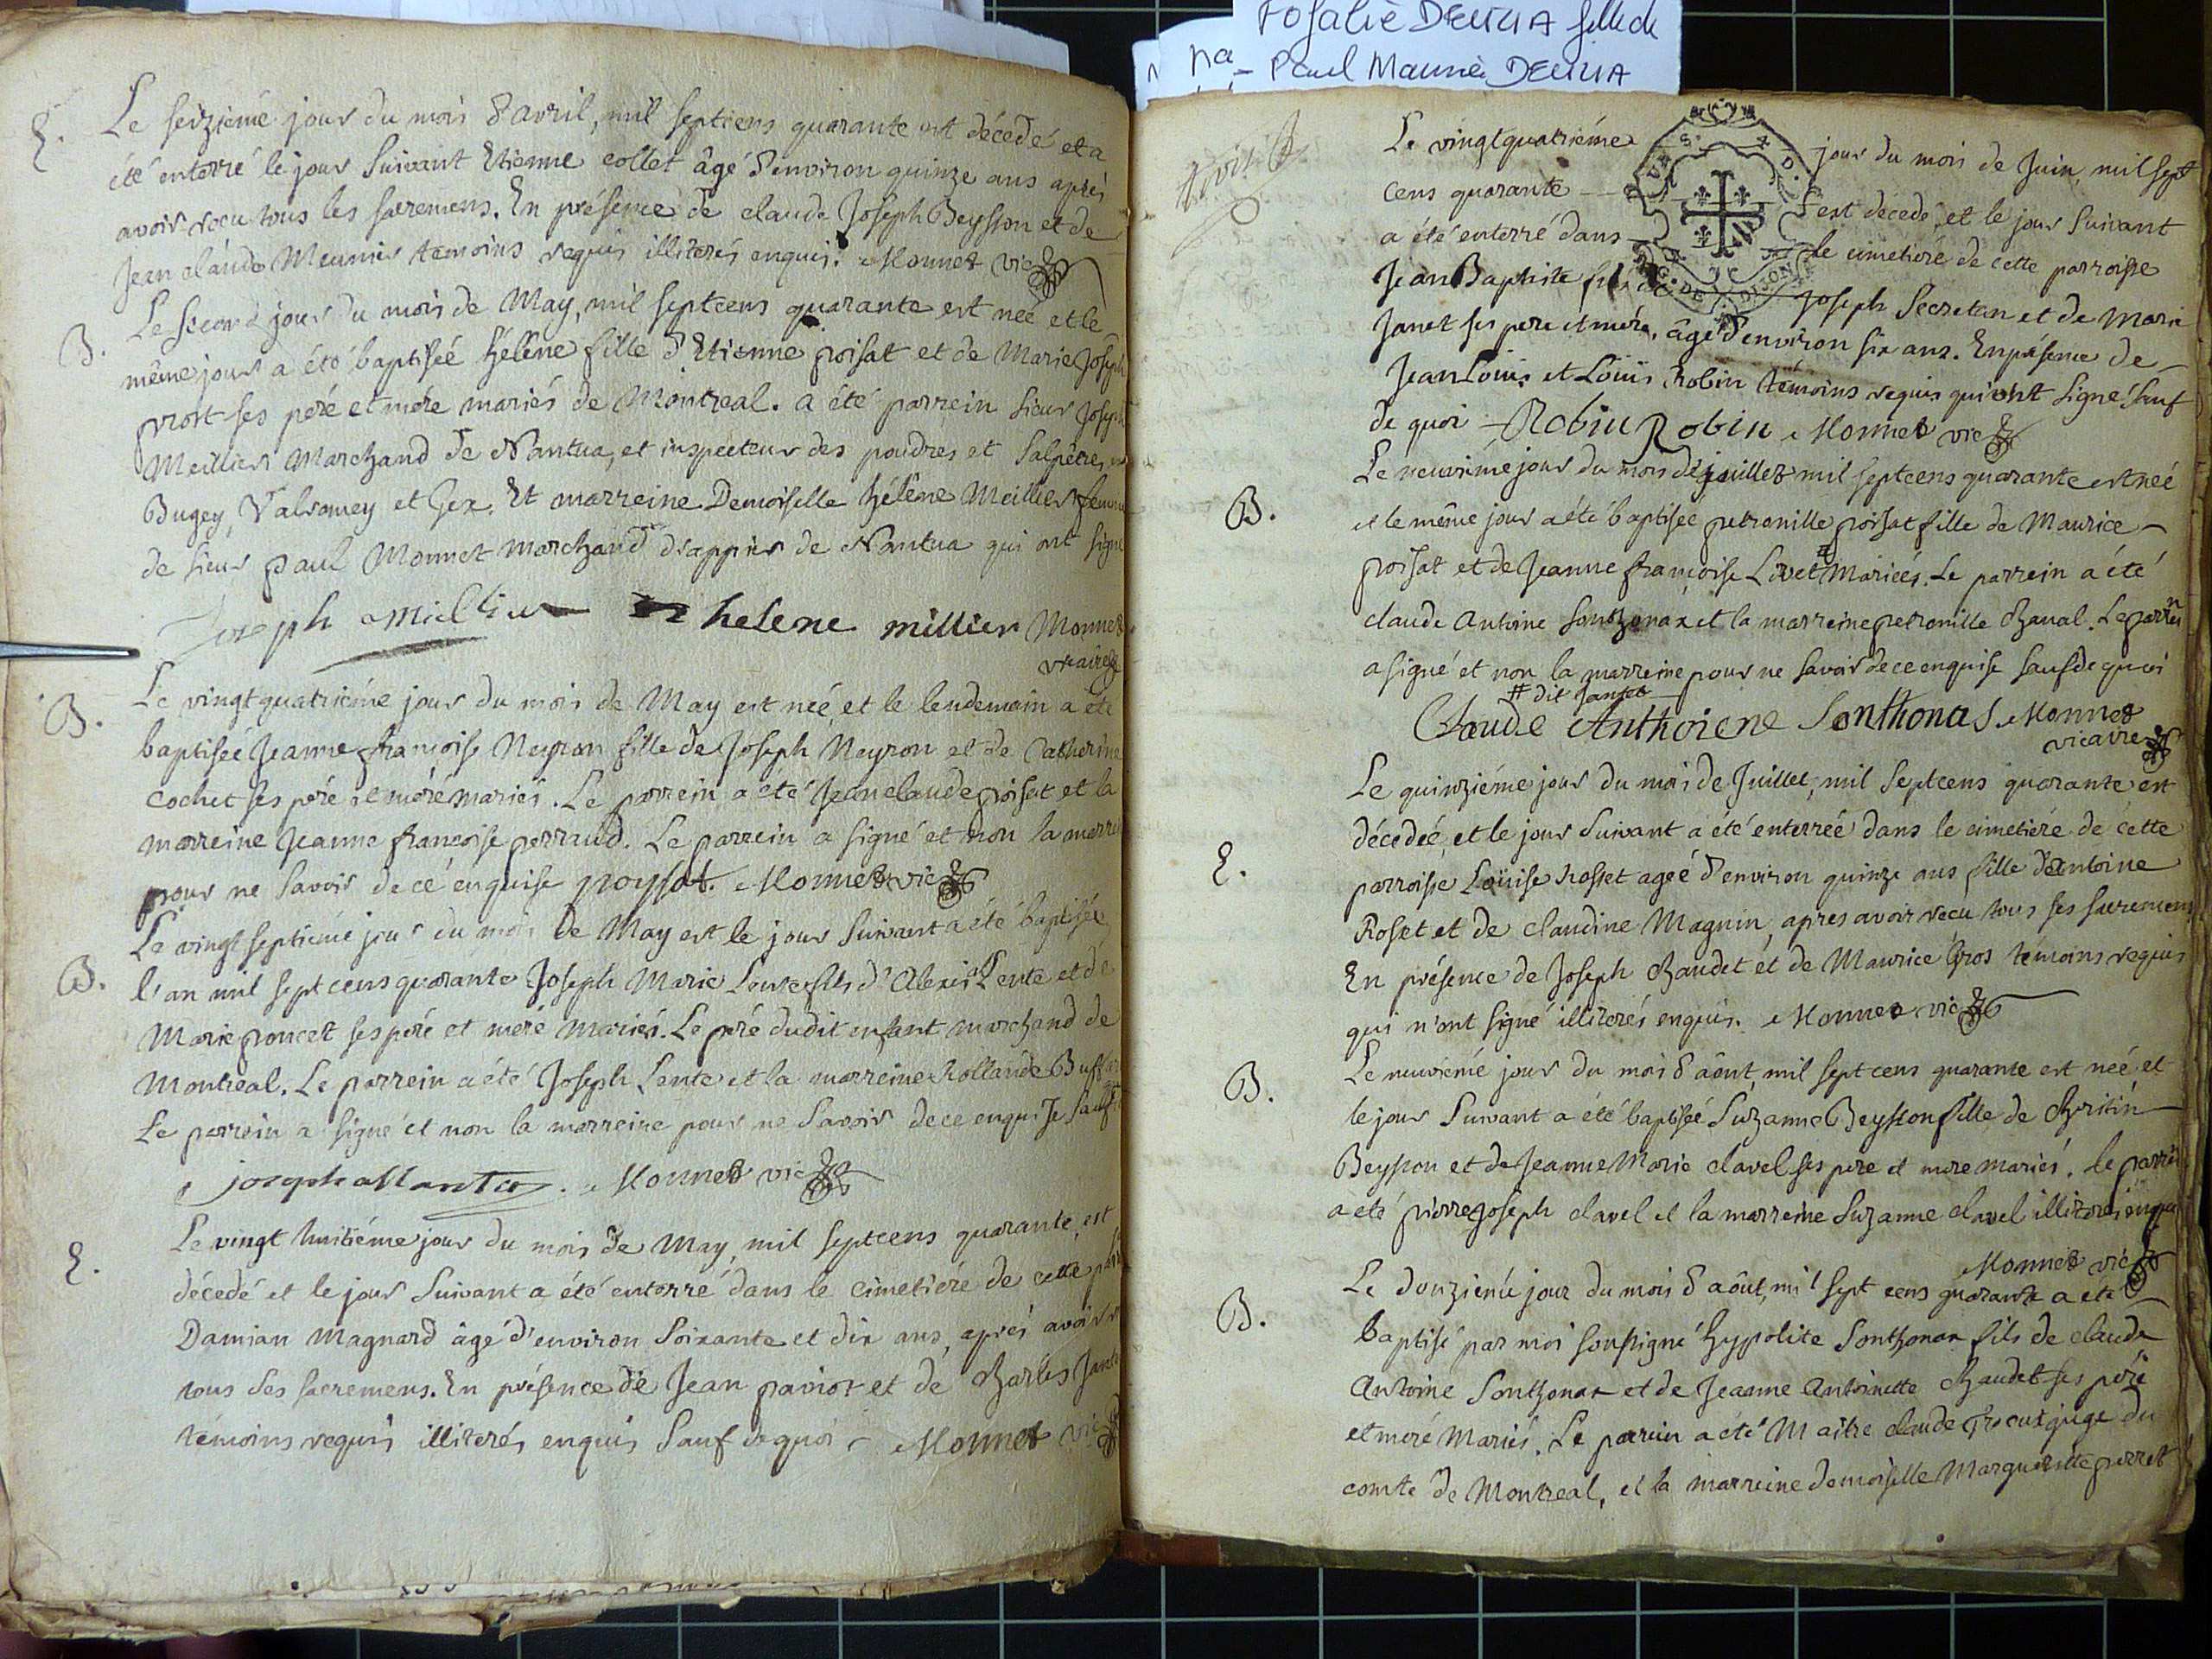 E.
Le seizième jour du mois d'avril, mil septcens quarante est décedé et a
été enterré le jour suivant Etienne collet âgé d'environ quinze ans après
avoir recu tous les sacremens. En présence de claude Joseph Beysson et de
Jean claude Meunier temoins requis illiterés enquis. Monnet vic
B.
Le second jour du mois de May, mil septcens quarante est neé et le
même jour a été baptiséé hélêne fille d'Etienne poisat et de Marie Joseph
prost ses peré et méré mariés de Montreal. a été parrein sieur Joseph
Meillier Marchand de Nantua, et inspecteur des poudres et salpêtres, en
Bugey, Valromey et Gex. Et marreine Demoiselle hélêne Meillier femme
de sieur paul Monnet marchand drappier de Nantua qui ont signé
Joseph Millier helene millier Monnet
vicaire
B.
Le vingtquatriéme jour du mois de May est néé et le lendemain a été
baptiséé Jeanne françoise Neyron fille de Joseph Neyron et de Catherine
cochet ses peré et méré mariés. Le parrein a été Jean claude poisat et la
marreine Jeanne françoise perraud. Le parrein a signé et non la marreine
pour ne savoir de ce enquise poysat. Monnet vic
B.
Le vingtseptiéme jour du mois de May est le jour suivant a été baptisée
l'an mil sept cens quarante Joseph Marie Lente fils d'Alexis Lente et de
Marie poncet ses peré et meré Mariés. Le peré dudit enfant marchand de
Montreal. Le parrein a été Joseph Lente et la marreine Rollande
Le parrein a signé et non la marreine pour ne savoir de ce enquise sauf
joseph allante. Monnet vic
E.
Le vingt huitiéme jour du mois de May, mil septcens quarante, est
décedé et le jour suivant a été enterré dans le cimetieré de cette
Damian Magnard âgé d'environ soixante et dix ans, aprés avoir
tous ses sacremens. En présence de Jean paviot et de Charles
témoins requis illiterés enquis sauf de quoi - Monnet vic
rosalie DELILIA fille de
na - Paul Maurice DELILIA
Le vingtquatriéme jour du mois de Juin, mil sept
cens quarante est decedé, et le jour suivant
a été enterré dans le cimetieré de cette parroisse
Jean Baptiste fils de Joseph Secretan et de Marie
Janet ses pere et mére, âgé d'environ six ans. En présence de
Jean Loüis et Loüis Robin témoins requis qui ont signé sauf
de quoi Robin Robin Monnet vic
B.
Le neuviéme jour du mois de juillet mil septcens quarante est néé
et le même jour a été baptisée petronille poisat fille de Maurice
poisat et de Jeanne françoise Livet # Mariées. Le parrein a été
claude Antoine Sonthonax et la marreine petronille Chaval. Le parrein
a signé et non la marreine pour ne savoir de ce enquise sauf de quoi
# dit Janet
Claude Anthoiene Sonthonas Monnet
vicaire
E.
Le quinziéme jour du mois de Juillet, mil septcens quarante est
décedéé, et le jour suivant a été enterréé dans le cimetieré de cette
parroisse Loüise Rosset ageé d'environ quinze ans fille d'Antoine
Roset et de claudine Magnin, apres avoir recu tous ses sacremens
En présence de Joseph Chaudet et de Maurice Gros témoins requis
qui n'ont signé illiterés enquis. Monnet vic
B.
Le neuviémé jour du mois d'aôut, mil sept cens quarante est néé, et
le jour suivant a été baptiséé Suzanne Beysson fille de Christin
Beysson et de Jeanne Marie clavel ses pere et mere mariés. le parrein
a été pierre Joseph clavel et la marreine Suzanne clavel illiterés enquis
Monnet vic
B.
Le douziéme jour du mois d'aôut, mil sept cens quarante a été
baptisé par moi soussigné hyppolite Sonthonax fils de claude
Antoine Sonthonax et de Jeanne Antoinette Chaudet ses péré
et méré Mariés. Le parrein a été Maitre claude juge du
comte de Montreal, et la marreine demoiselle Marguerite perret